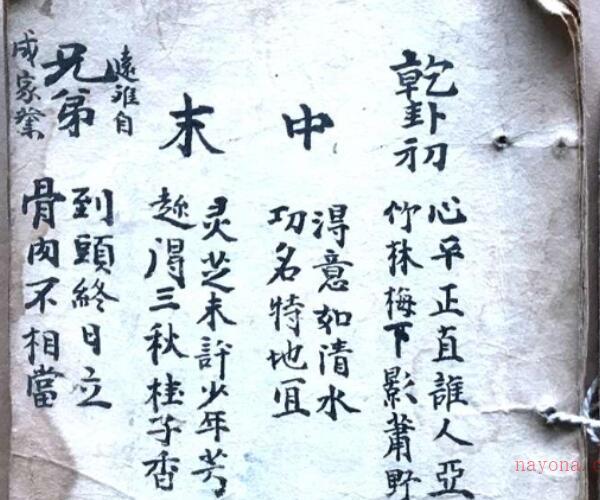 乾卦初
心平正直誰人亞
竹林梅下影蕭野
中
得意如清水
功名特地宜
末
灵芝未許少年芳
趂得三秋桂子香
兄弟
遠雅自
成家業
到頭終日立
骨肉不相當
nayona.c